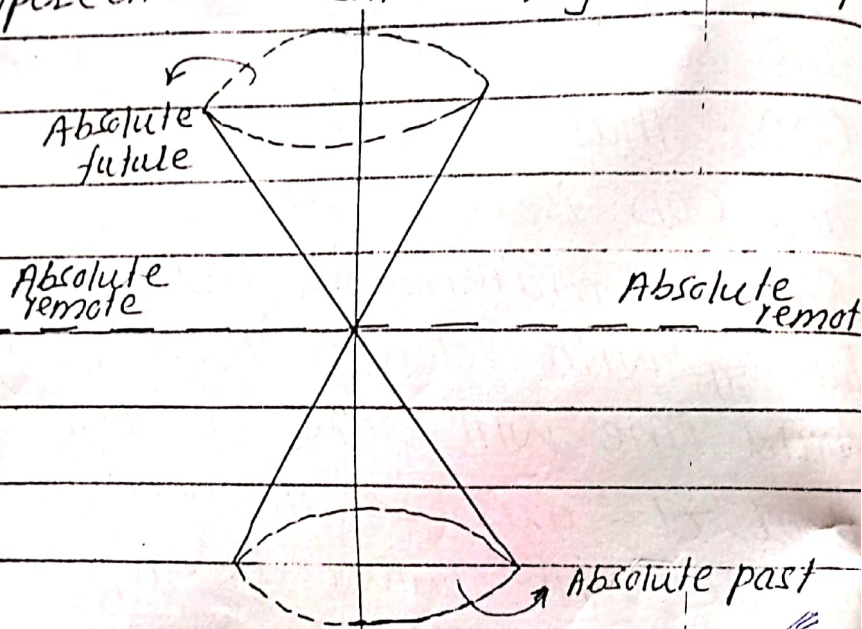 Absolute
futule
Absolute
remote
Absolute
remot
Absolute past